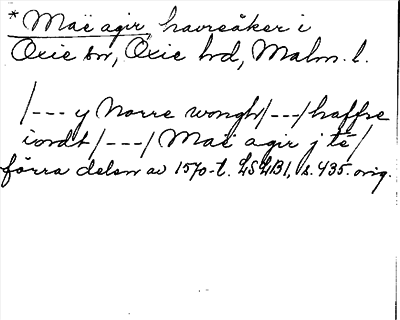 * Maë agir, havreåker i
Oxie sn, Oxie hd, Malm. l.
/--- y Norre wongh/---/haffre
iordt/---/Maë agir j tē/
förra delen av 1570-t. LSLB1, s. 435. orig.